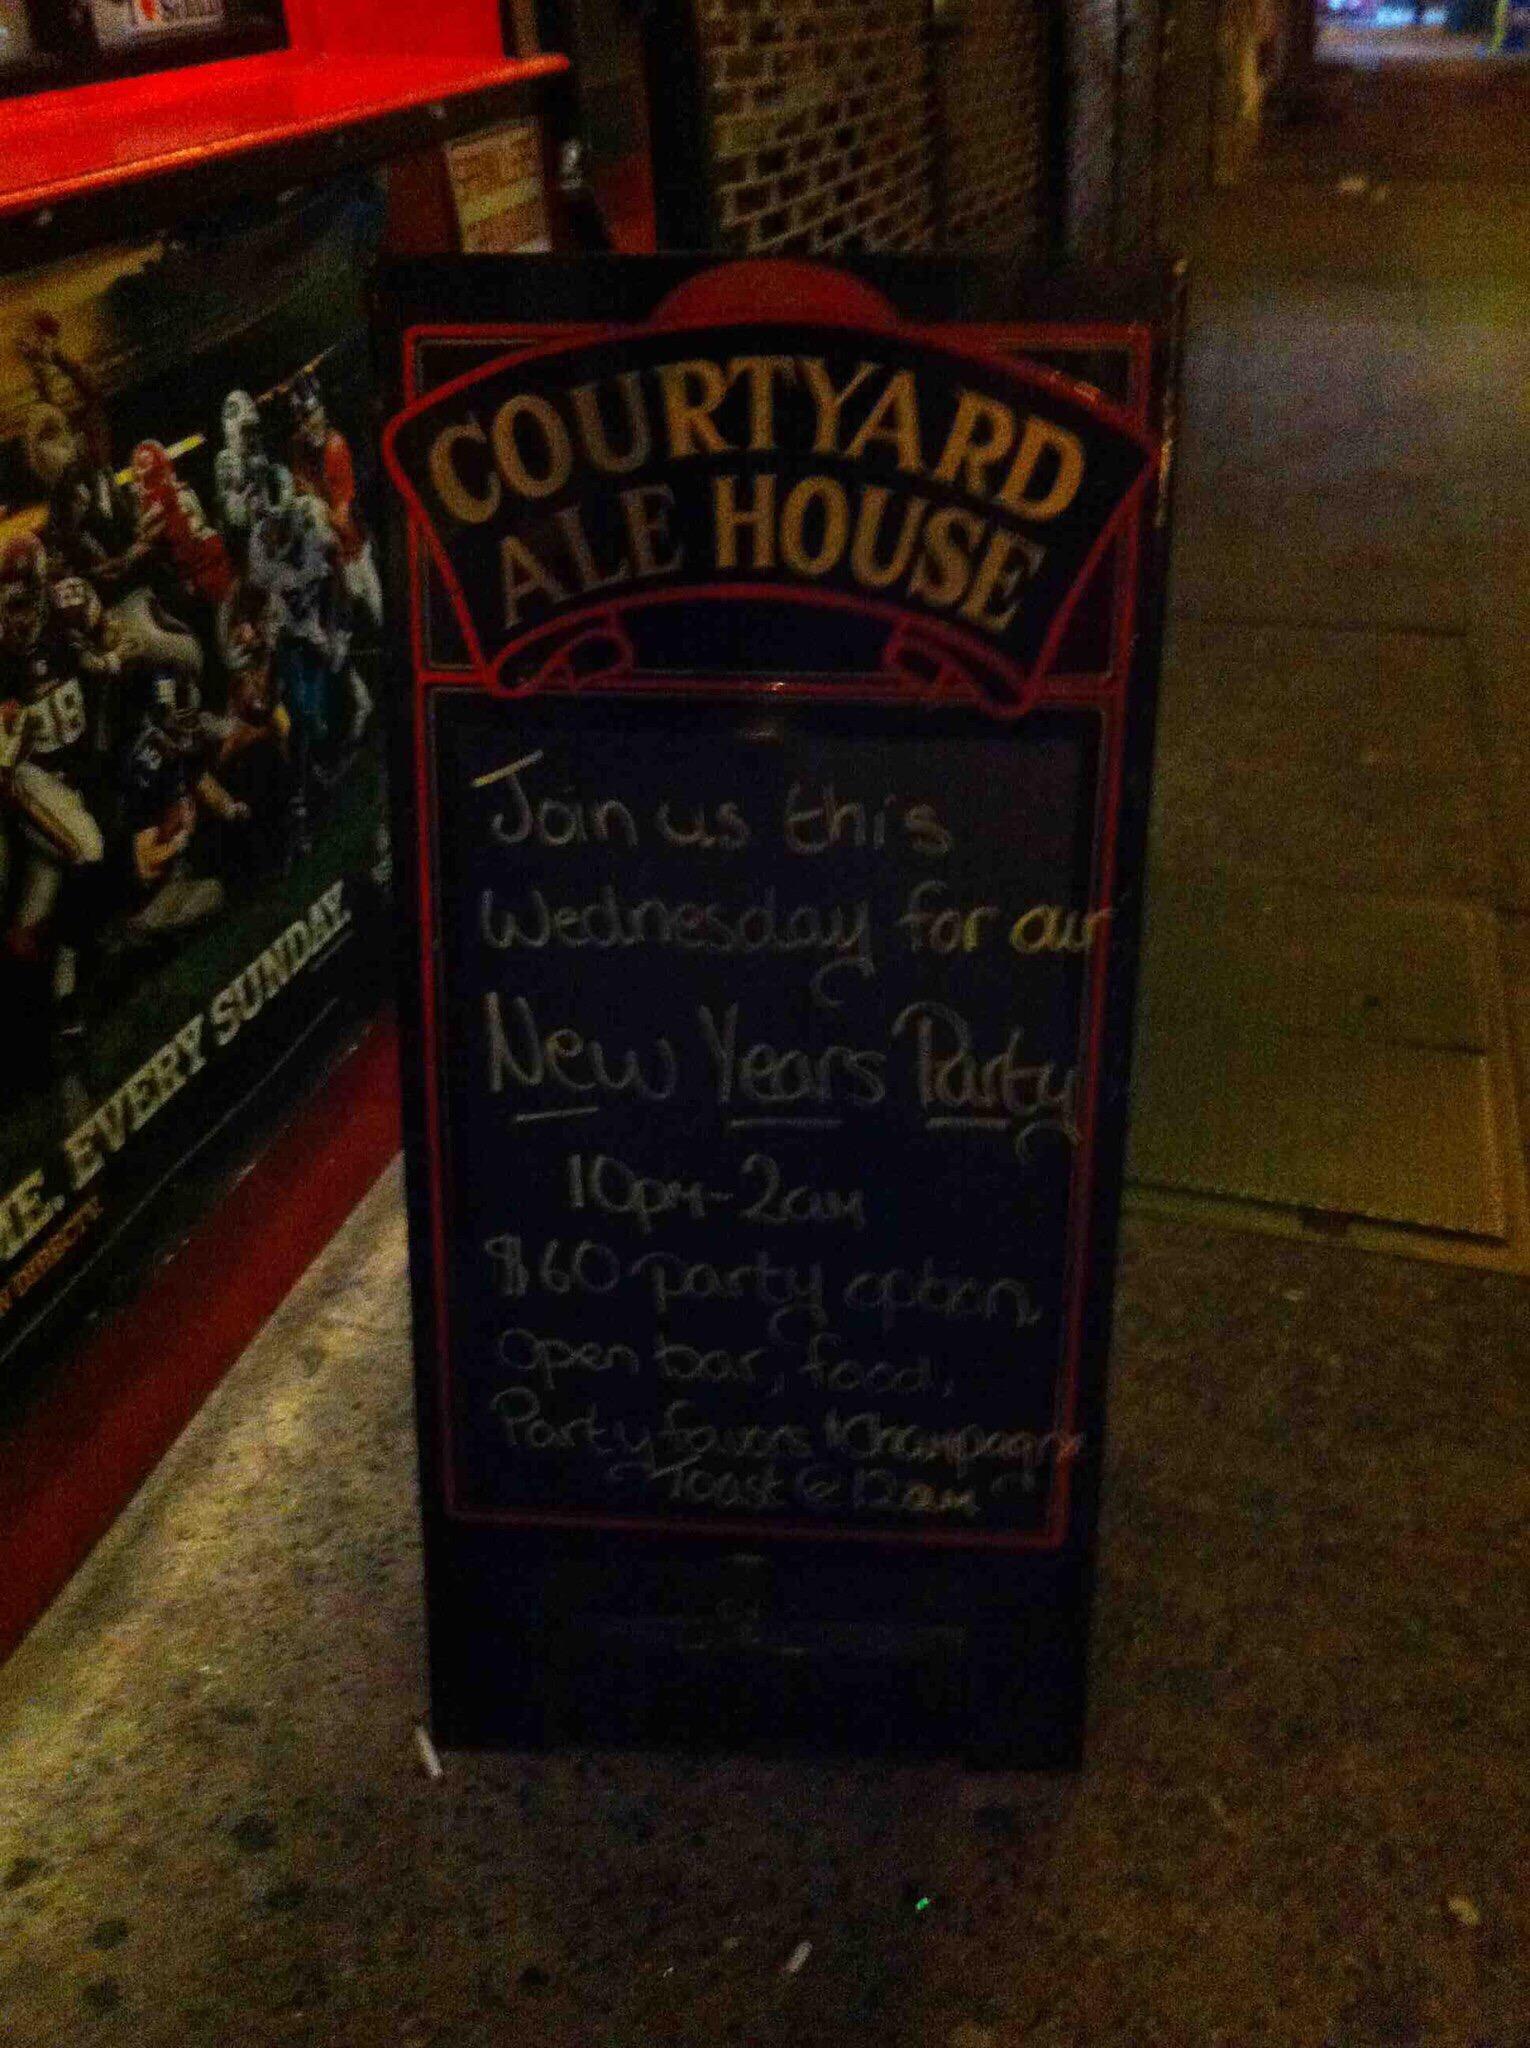 COURTYARD
ALE HOUSE
Join us this
Wednesday for our
New Years Party
10pm-2am
$60 party option
Open bar, food,
Party favors & Champagne
Toast @ 12am
ME. EVERY SUNDAY.
38